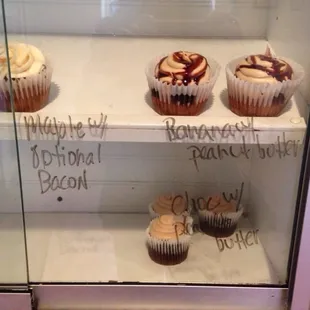 Maple w/
optional
Bacon
Banana w/
peanut butter
Choc w/
peanut
butter